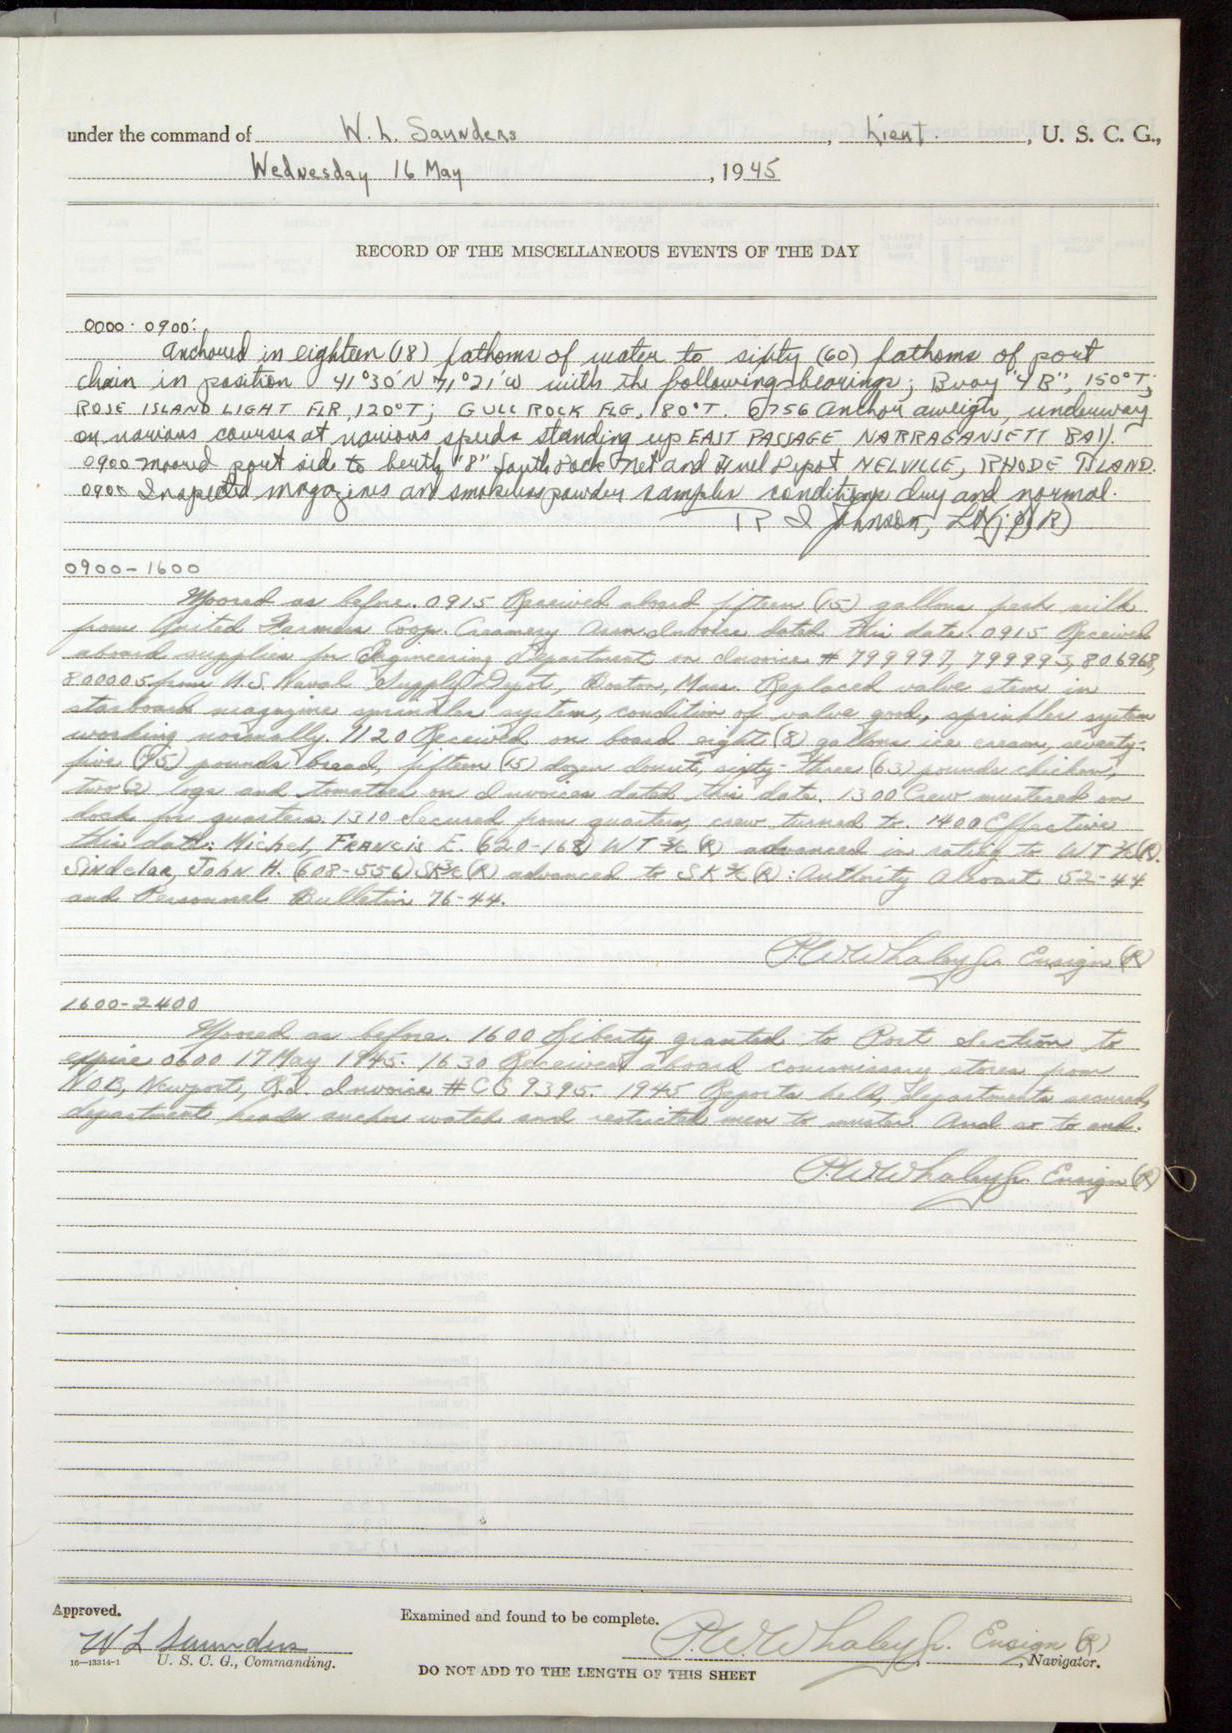 under the command of W. L. Saunders, Lieut., U. S. C. G.,
Wednesday 16 May, 1945
RECORD OF THE MISCELLANEOUS EVENTS OF THE DAY
0000-0900:
Anchored in eighteen (18) fathoms of water to sixty (60) fathoms of port
chain in position 41°30'N 71°21'W with the following bearings; Buoy "4B", 150°T;
ROSE ISLAND LIGHT FLR, 120°T; GULL ROCK FLG, 180°T. 0756 Anchor aweigh, underway
on various courses at various speeds standing up EAST PASSAGE NARRAGANSETT BAY.
0900 moored port side to berth "8" South Dock Net and Fuel Depot MELVILLE, RHODE ISLAND.
0900 Inspected magazines and smokeless powder samples conditions dry and normal.
R I Johnson, Lt(jg)(R)
0900-1600
Moored as before. 0915 Received aboard fifteen (15) gallons fresh milk
from United Farmers Coop. Creamery Assn. Invoice dated this date. 0915 Received
aboard supplies for Engineering Department on Invoice # 799997, 799993, 806968,
800005 from U.S. Naval Supply Depot, Boston, Mass. Replaced valve stem in
starboard magazine sprinkler system, condition of valve good, sprinkler system
working normally. 1120 Received on board eight (8) gallons ice cream, seventy-
five (75) pounds bread, fifteen (15) dozen donuts, sixty-three (63) pounds chicken,
two (2) logs and tomatoes on Invoices dated this date. 1300 Crew mustered on
dock for quarters. 1310 Secured from quarters, crew turned to. 1400 Effective
this date: Michel, Francis E. (620-168) WT 3/c (R) advanced in rating to WT 2/c (R).
Sindelar, John H. (608-556) SK 3/c (R) advanced to SK 2/c (R). Authority Alcoast 52-44
and Personnel Bulletin 76-44.
P.W. Whaley Jr. Ensign (R)
1600-2400
Moored as before. 1600 Liberty granted to Port Section to
expire 0600 17 May 1945. 1630 Received aboard commissary stores from
NOB, Newport, R.I. Invoice # CS 9395. 1945 Reports held, departments secured,
department heads anchor watch and restricted men to muster. And so to end.
P.W. Whaley Jr. Ensign (R)
Approved.
Examined and found to be complete.
W L Saunders
P.W. Whaley Jr. Ensign (R)
16—13314-1 U. S. C. G., Commanding.
, Navigator.
DO NOT ADD TO THE LENGTH OF THIS SHEET